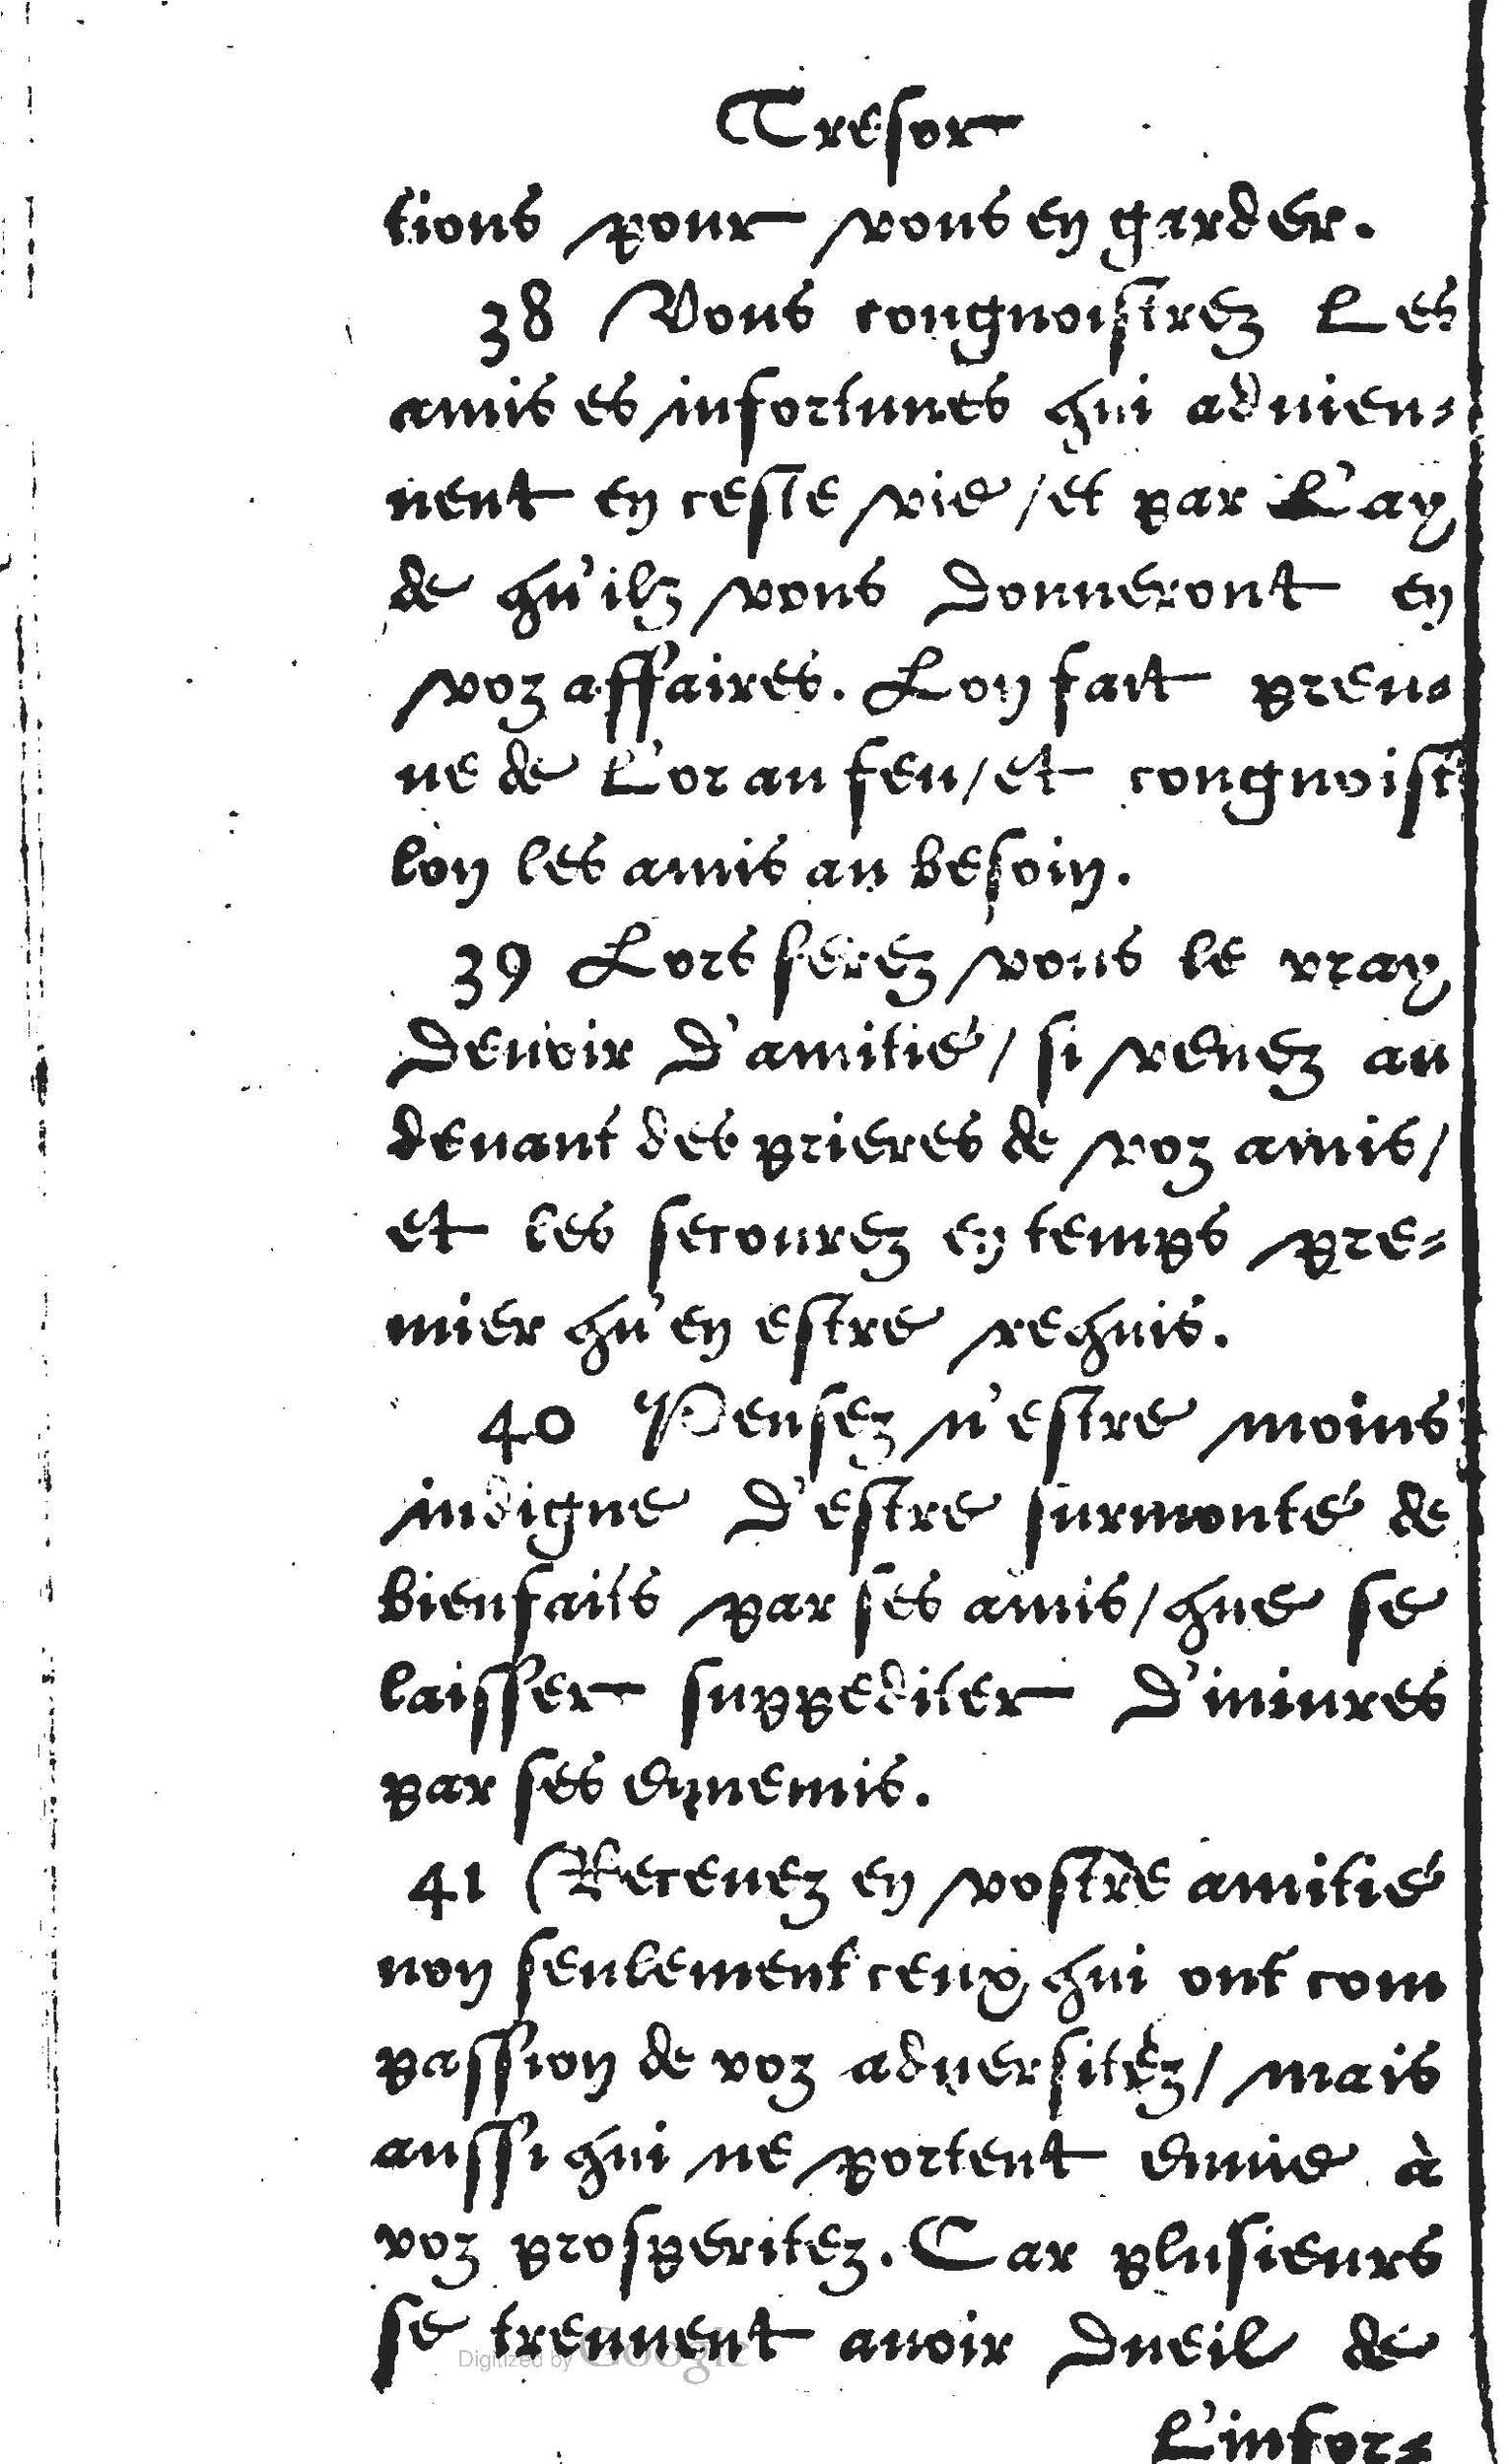 Tresor
tions pour vous en garder.
38 Vous congnoistrez les
amis es infortunes qui aduien-
nent en ceste vie / et par l'ay
de qu'ilz vous donneront en
voz affaires. Lon fait preu-
ue de l'or au feu / et congnoist
lon les amis au besoin.
39 Lors ferez vous le vray
deuoir d'amitié / si venez au
deuant des prieres de voz amis /
et les secourez en temps pre-
mier qu'en estre requis.
40 Pensez n'estre moins
indigne d'estre surmonté de
bienfaits par ses amis / que se
laisser suppediter d'iniures
par ses ennemis.
41 Receuez en vostre amitié
non seulement ceux qui ont com
passion de voz aduersitéz / mais
aussi qui ne portent enuie à
voz prosperitez. Car plusieurs
se treuuent auoir dueil de
Digitized by Google
L'infor-